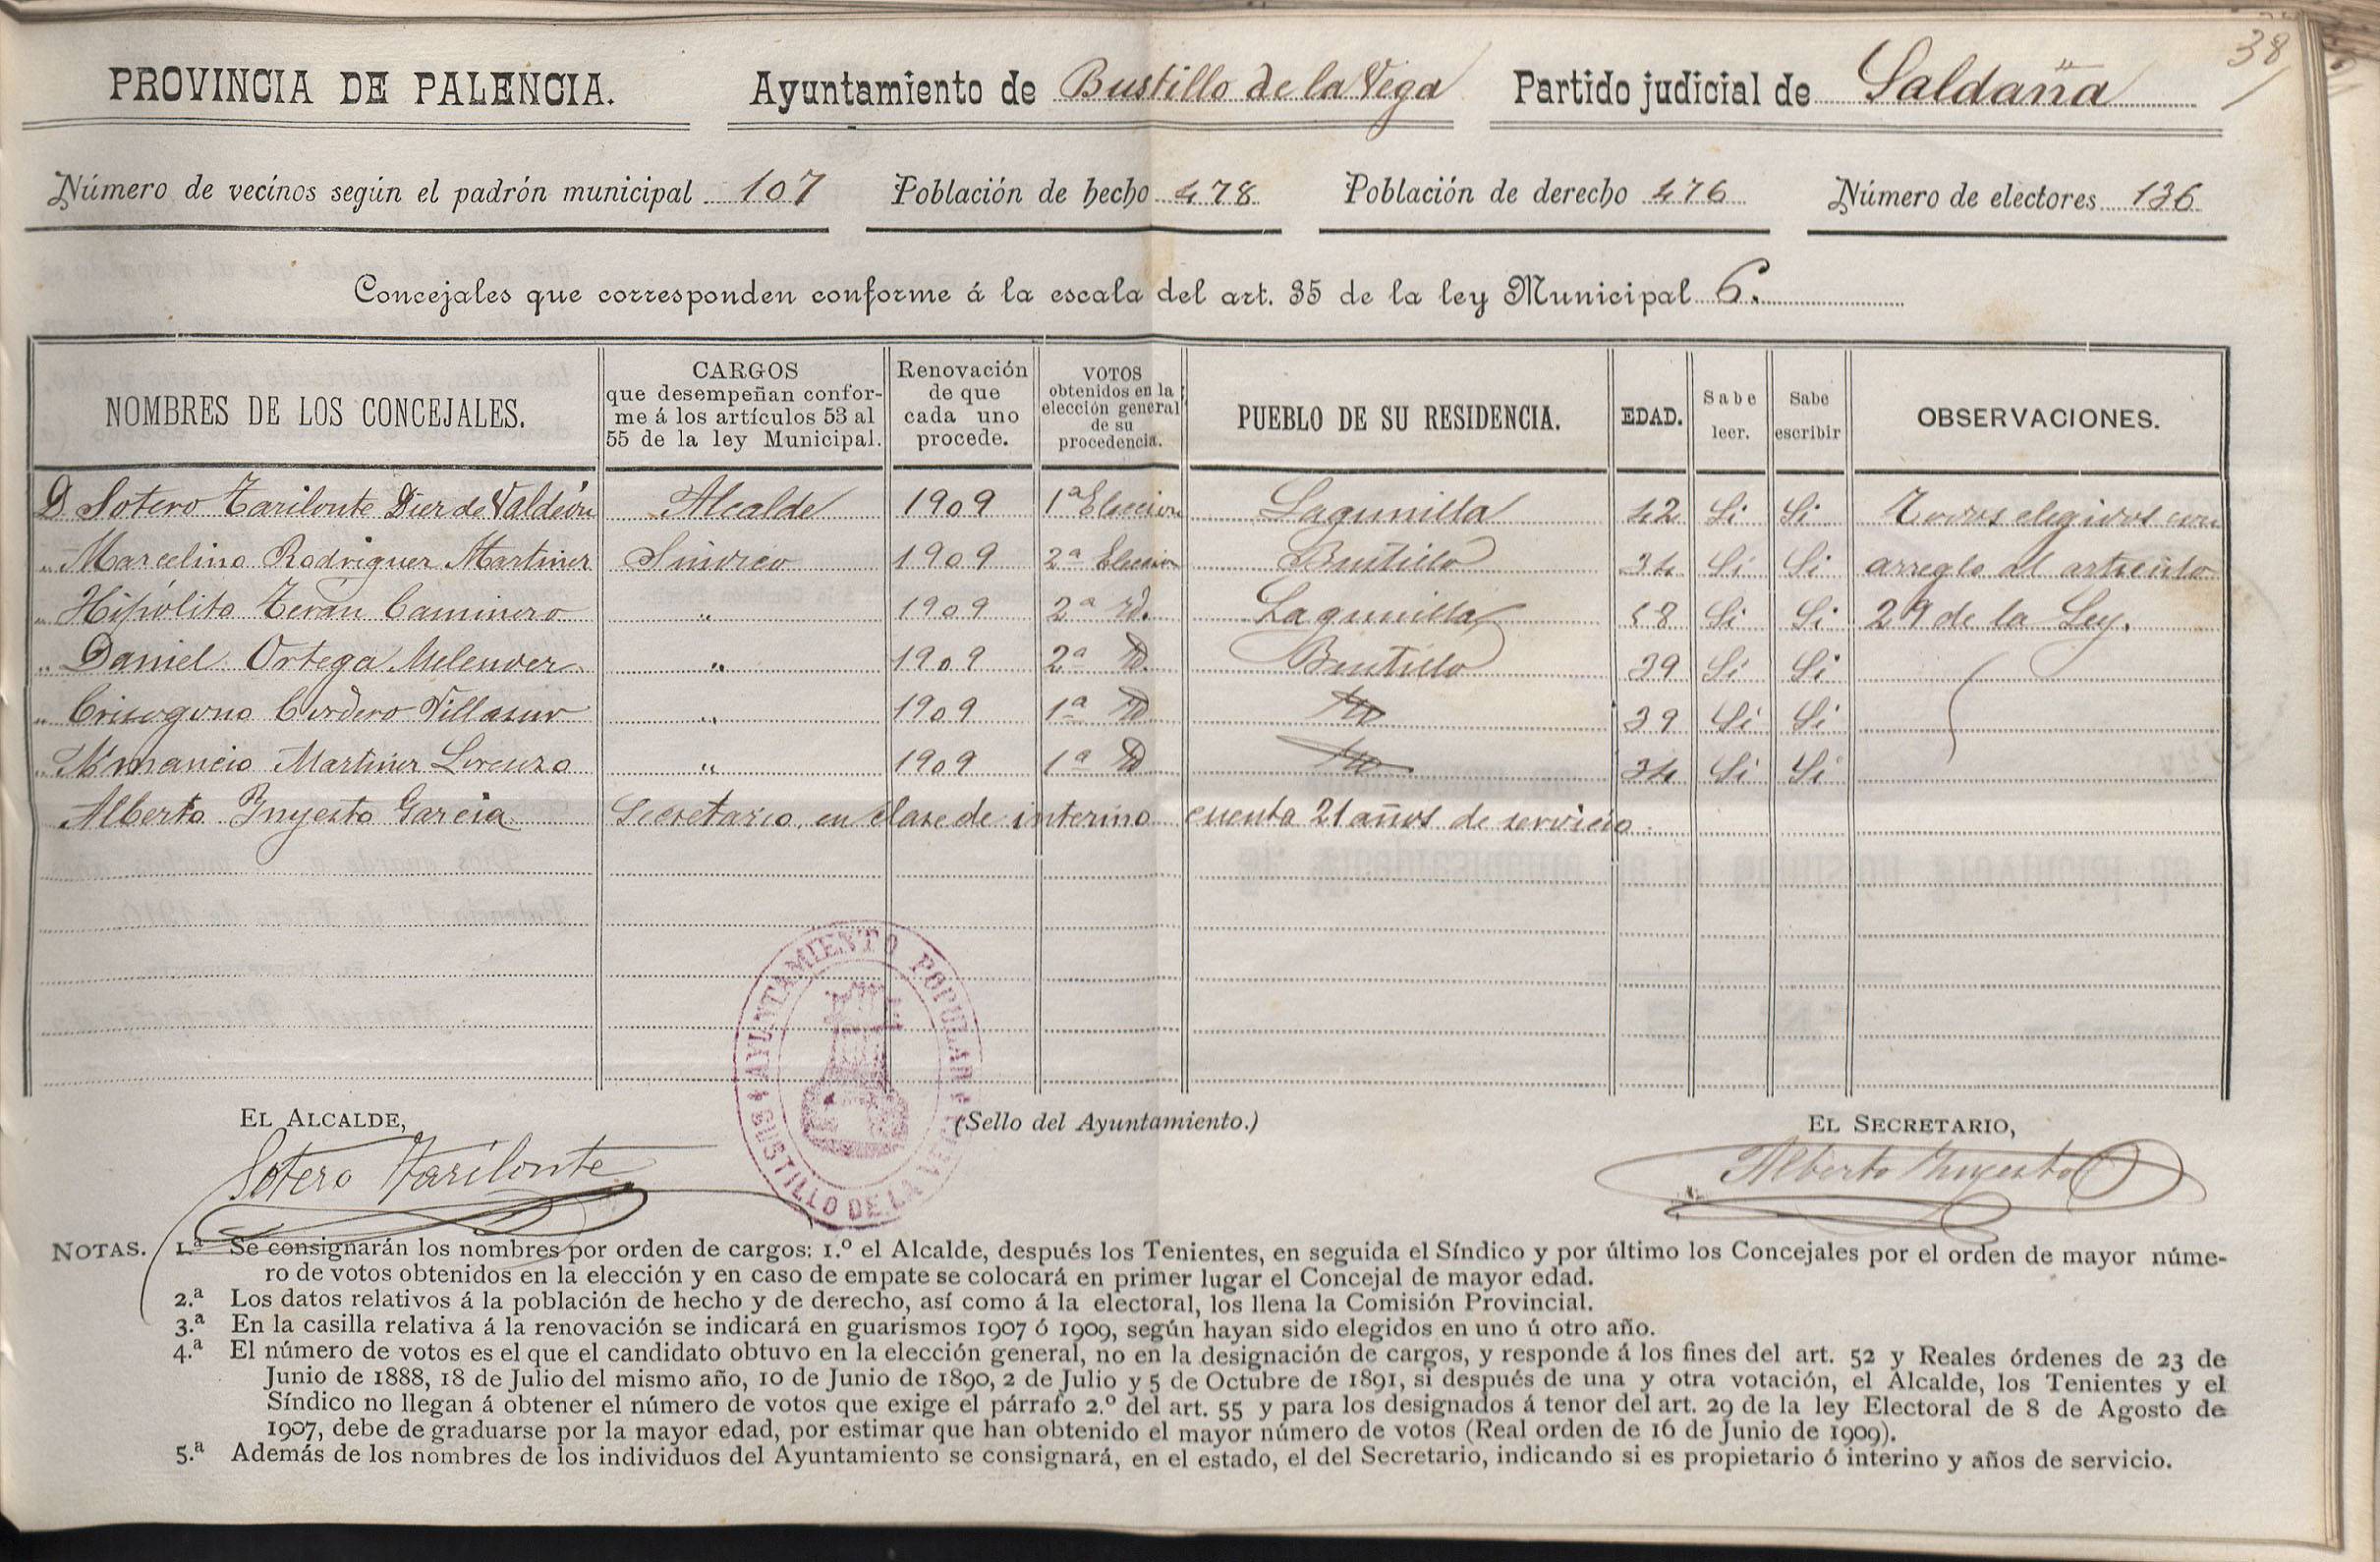 38
PROVINCIA DE PALENCIA. Ayuntamiento de Bustillo de la Vega Partido judicial de Saldaña
Número de vecinos según el padrón municipal 107 Población de hecho 478 Población de derecho 476 Número de electores 136
Concejales que corresponden conforme á la escala del art. 35 de la ley Municipal 6.
NOMBRES DE LOS CONCEJALES. CARGOS que desempeñan confor- me á los artículos 53 al 55 de la ley Municipal. Renovación de que cada uno procede. VOTOS obtenidos en la elección general de su procedencia. PUEBLO DE SU RESIDENCIA. EDAD. Sabe leer. Sabe escribir OBSERVACIONES.
D Sotero Tarilonte Diez de Valdeón Alcalde 1909 1ª Eleccion Lagunilla 42 Si Si Todos elegidos con
" Marcelino Rodriguez Martinez Sindico 1909 2ª Eleccion Bustillo 34 Si Si arreglo al articulo
" Hipólito Terán Caminero " 1909 2ª id. Lagunilla 48 Si Si 29 de la Ley.
" Daniel Ortega Melendez " 1909 2ª id. Bustillo 39 Si Si
" Crisogono Cordero Villasur " 1909 1ª id 39 Si Si
" Amancio Martinez Lorenzo " 1909 1ª id 34 Si Si
Alberto Ynyesto Garcia Secretario, en clase de interino cuenta 21 años de servicio
EL ALCALDE, (Sello del Ayuntamiento.) EL SECRETARIO,
Sotero Tarilonte Alberto Ynyesto
AYUNTAMIENTO POPULAR BUSTILLO DE LA VEGA
NOTAS. 1.ª Se consignarán los nombres por orden de cargos: 1.º el Alcalde, después los Tenientes, en seguida el Síndico y por último los Concejales por el orden de mayor núme-
ro de votos obtenidos en la elección y en caso de empate se colocará en primer lugar el Concejal de mayor edad.
2.ª Los datos relativos á la población de hecho y de derecho, así como á la electoral, los llena la Comisión Provincial.
3.ª En la casilla relativa á la renovación se indicará en guarismos 1907 ó 1909, según hayan sido elegidos en uno ú otro año.
4.ª El número de votos es el que el candidato obtuvo en la elección general, no en la designación de cargos, y responde á los fines del art. 52 y Reales órdenes de 23 de
Junio de 1888, 18 de Julio del mismo año, 10 de Junio de 1890, 2 de Julio y 5 de Octubre de 1891, si después de una y otra votación, el Alcalde, los Tenientes y el
Síndico no llegan á obtener el número de votos que exige el párrafo 2.º del art. 55 y para los designados á tenor del art. 29 de la ley Electoral de 8 de Agosto de
1907, debe de graduarse por la mayor edad, por estimar que han obtenido el mayor número de votos (Real orden de 16 de Junio de 1909).
5.ª Además de los nombres de los individuos del Ayuntamiento se consignará, en el estado, el del Secretario, indicando si es propietario ó interino y años de servicio.